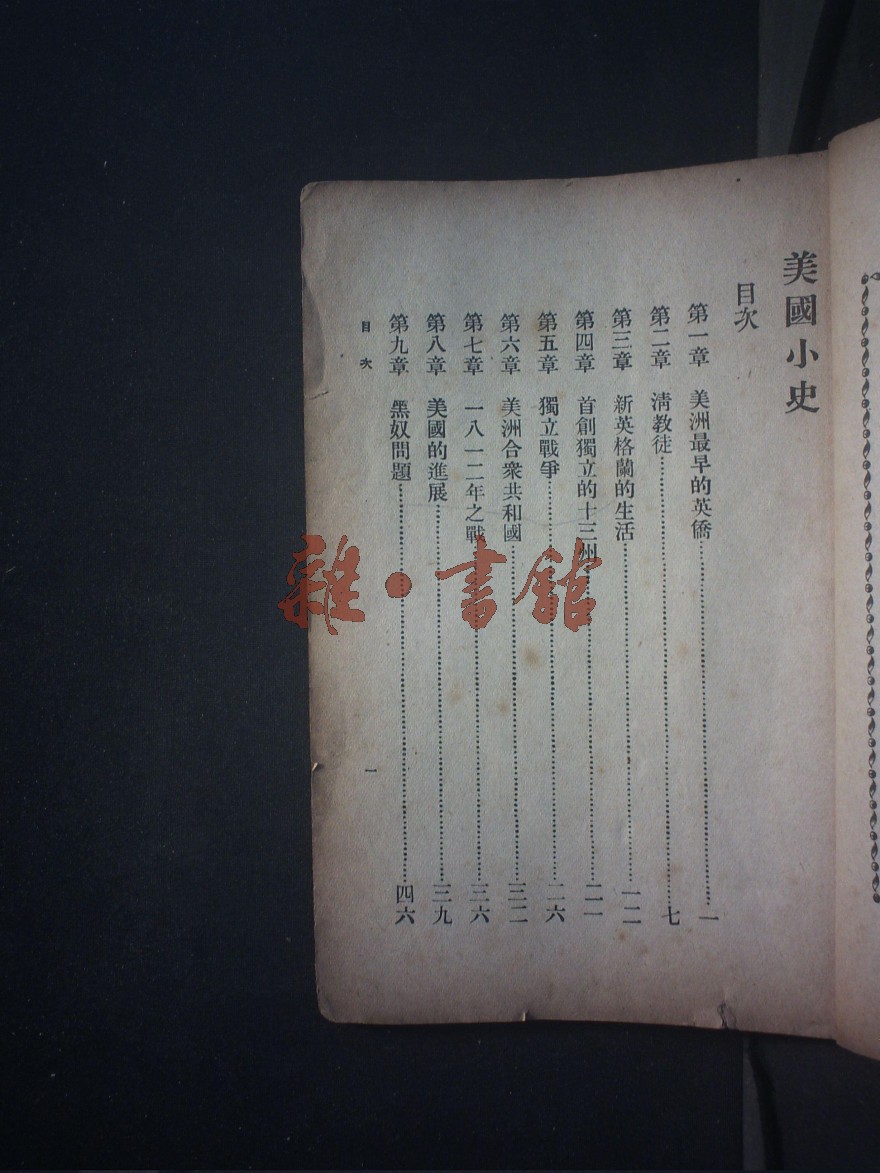 美國小史
目次
第一章 美洲最早的英僑……一
第二章 清教徒……七
第三章 新英格蘭的生活……一二
第四章 首創獨立的十三州……二一
第五章 獨立戰爭……二六
第六章 美洲合衆共和國……三二
第七章 一八一二年之戰……三六
第八章 美國的進展……三九
第九章 黑奴問題……四六
目次
一
雜·書館